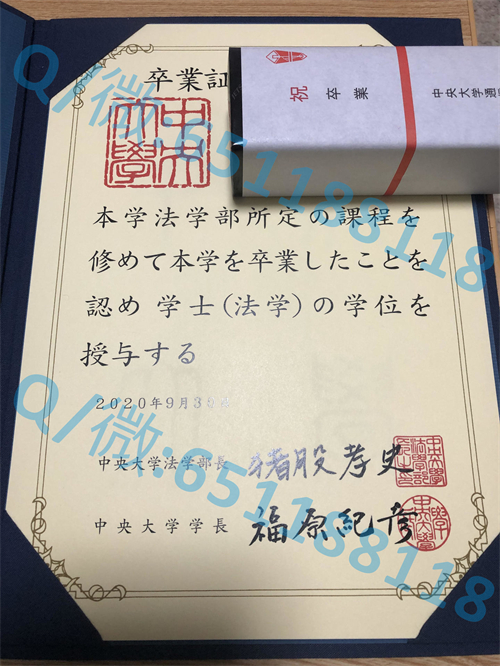 卒業証
祝 卒業 中央大学
中央大學
本学法学部所定の課程を
修めて本学を卒業したことを
認め 学士(法学)の学位を
授与する
2020年9月3
中央大学法学部長 猪股孝史
中央大学学長 福原紀彦
Q/微:651188118
Q/微:651188118